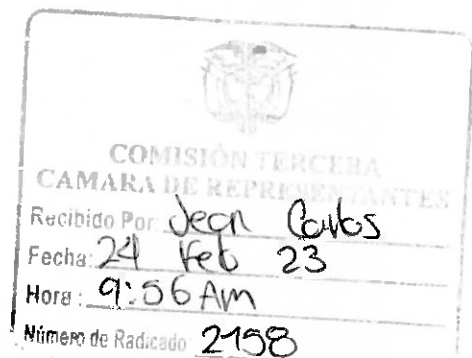 COMISIÓN TERCERA
CAMARA DE REPRESENTANTES
Recibido Por: Jean Carlos
Fecha: 24 Feb 23
Hora: 9:56 AM
Número de Radicado 2158